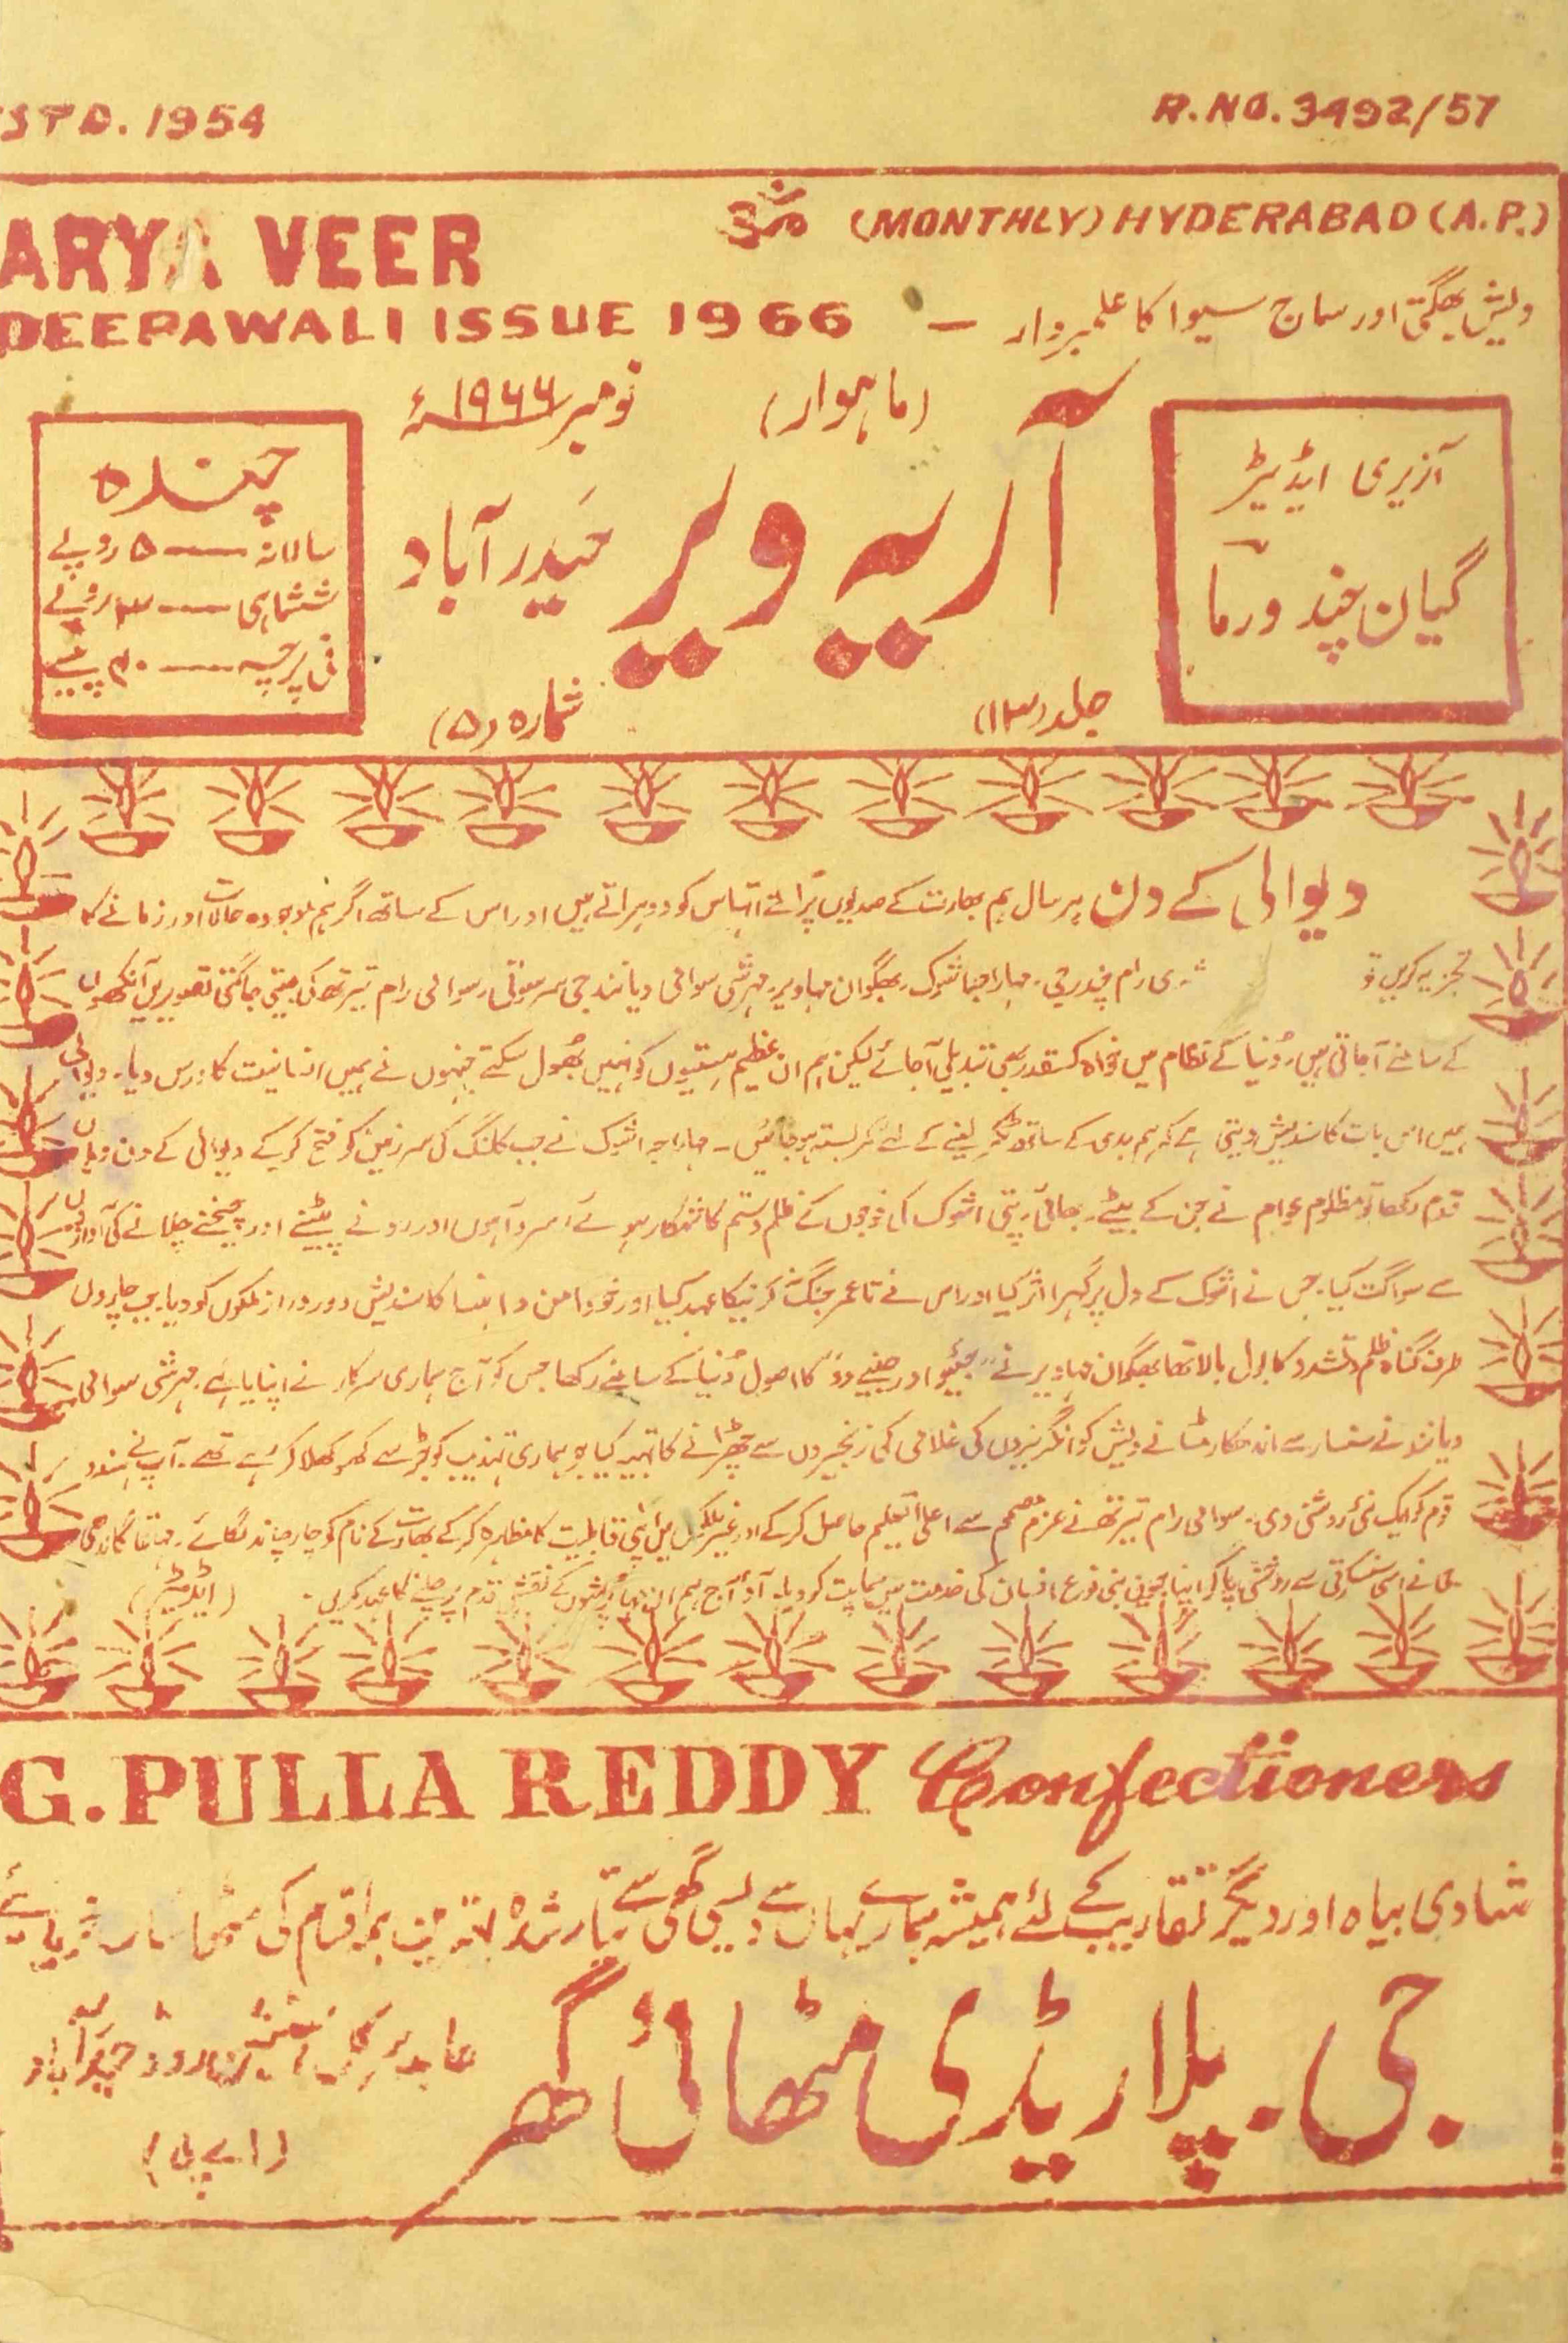 STD. 1954
R.NO. 3492/57
ARYA VEER
ॐ (MONTHLY) HYDERABAD (A.P.)
DEEPAWALI ISSUE 1966 —
دیش بھگتی اور سماج سیوا کا علمبردار
نومبر ۱۹۶۶ء
(ماہوار)
آنریری ایڈیٹر
گیان چند ورما
آریہ ویر
حیدرآباد
چندہ
سالانہ — ۵ روپے
ششماہی — ۳ روپے
فی پرچہ — ۴۰ پیسے
جلد (۱۳)
شمارہ (۵)
دیوالی کے دن ہر سال ہم بھارت کے صدیوں پرانے اتہاس کو دوہراتے ہیں اور اس کے ساتھ اگر ہم موجودہ حالات اور زمانے کا
تجزیہ کریں تو شری رام چندرجی۔ مہاراجہ اشوک۔ بھگوان مہاویر۔ مہرشی سوامی دیانند جی سرسوتی۔ سوامی رام تیرتھ کی جیتی جاگتی تصویریں آنکھوں
کے سامنے آجاتی ہیں۔ دُنیا کے نظام میں خواہ کسقدر بھی تبدیلی آجائے لیکن ہم ان عظیم ہستیوں کو نہیں بھُول سکتے جنہوں نے ہمیں انسانیت کا درس دیا۔ دیوالی
ہمیں اس بات کا سندیش دیتی ہے کہ ہم بدی کے ساتھ ٹکر لینے کے لئے کمربستہ ہوجائیں۔ مہاراجہ اشوک نے جب کلنگ کی سرزمین کو فتح کرکے دیوالی کے دن وہاں
قدم رکھا تو مظلوم عوام نے جن کے بیٹے۔ بھائی۔ پتی اشوک کی فوجوں کے ظلم و ستم کا شکار ہوئے۔ سرد آہوں اور رونے پیٹنے اور چیخنے چلانے کی آوازوں
سے سواگت کیا۔ جس نے اشوک کے دل پر گہرا اثر کیا اور اس نے تا عمر جنگ نہ کرنیکا عہد کیا اور خود امن و اہنسا کا سندیش دور دراز ملکوں کو دیا۔ جب چاروں
طرف گناہ ظلم و تشدد کا بول بالا تھا بھگوان مہاویر نے "جیئو اور جینے دو" کا اصول دُنیا کے سامنے رکھا جس کو آج ہماری سرکار نے اپنایا ہے۔ مہرشی سوامی
دیانند نے سنسار سے اندھکار مٹانے دیش کو انگریزوں کی غلامی کی زنجیروں سے چھڑانے کا تہیہ کیا جو ہماری تہذیب کو جڑ سے کھوکھلا کر رہے تھے۔ آپ نے ہندو
قوم کو ایک نئی روشنی دی۔ سوامی رام تیرتھ نے عزم مصمم سے اعلیٰ تعلیم حاصل کرکے اور غیر ملکوں میں اپنی قابلیت کا مظاہرہ کرکے بھارت کے نام کو چار چاند لگائے۔ مہاتما گاندھی
جی نے اسی سنسکرتی سے روشنی پاکر اپنا جیون بنی نوع انسان کی خدمت میں سماپت کر دیا۔ آؤ آج ہم ان مہاپُرشوں کے نقش قدم پر چلنے کا عہد کریں۔ (ایڈیٹر)
G. PULLA REDDY Confectioners
شادی بیاہ اور دیگر تقاریب کے لئے ہمیشہ ہمارے یہاں سے دیسی گھی سے تیار شدہ بہترین ہمہ اقسام کی مٹھائیاں خریدیئے
جی۔ پلا ریڈی مٹھائی گھر
عابڈس اسٹیشن روڈ حیدرآباد
(اے پی)